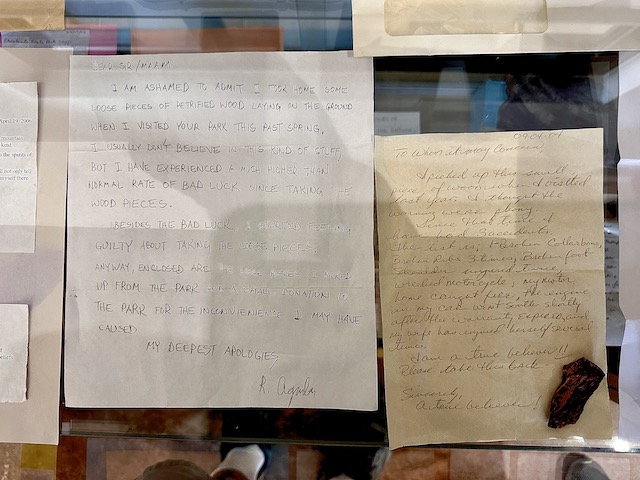 DEAR SIR/MAAM
I AM ASHAMED TO ADMIT I TOOK HOME SOME
LOOSE PIECES OF PETRIFIED WOOD LAYING ON THE GROUND
WHEN I VISITED YOUR PARK THIS PAST SPRING.
I USUALLY DON'T BELIEVE IN THIS KIND OF STUFF,
BUT I HAVE EXPERIENCED A MUCH HIGHER THAN
NORMAL RATE OF BAD LUCK SINCE TAKING
WOOD PIECES.
BESIDES THE BAD LUCK, I FEELING
GUILTY ABOUT TAKING THE PIECES.
ANYWAY, ENCLOSED ARE I
UP FROM THE PARK DONATION TO
THE PARK FOR THE INCONVENIENCE I MAY HAVE
CAUSED
MY DEEPEST APOLOGIES,
R.
To Whom it may Concern,
I picked up this small
piece of wood when I visited
last year. I thought the
warning was
Since that time I
have had
The list is; 1 Broken Collarbone,
Broken Ribs 3 times, Broken foot
injured twice,
wrecked motorcycle, my motor
home caught fire, the engine
in my car went out shortly
after the warranty expired, and
my wife has injured herself several
times.
I am a true believer!!
Please take this back
Sincerely,
A true believer!
April 19, 2006